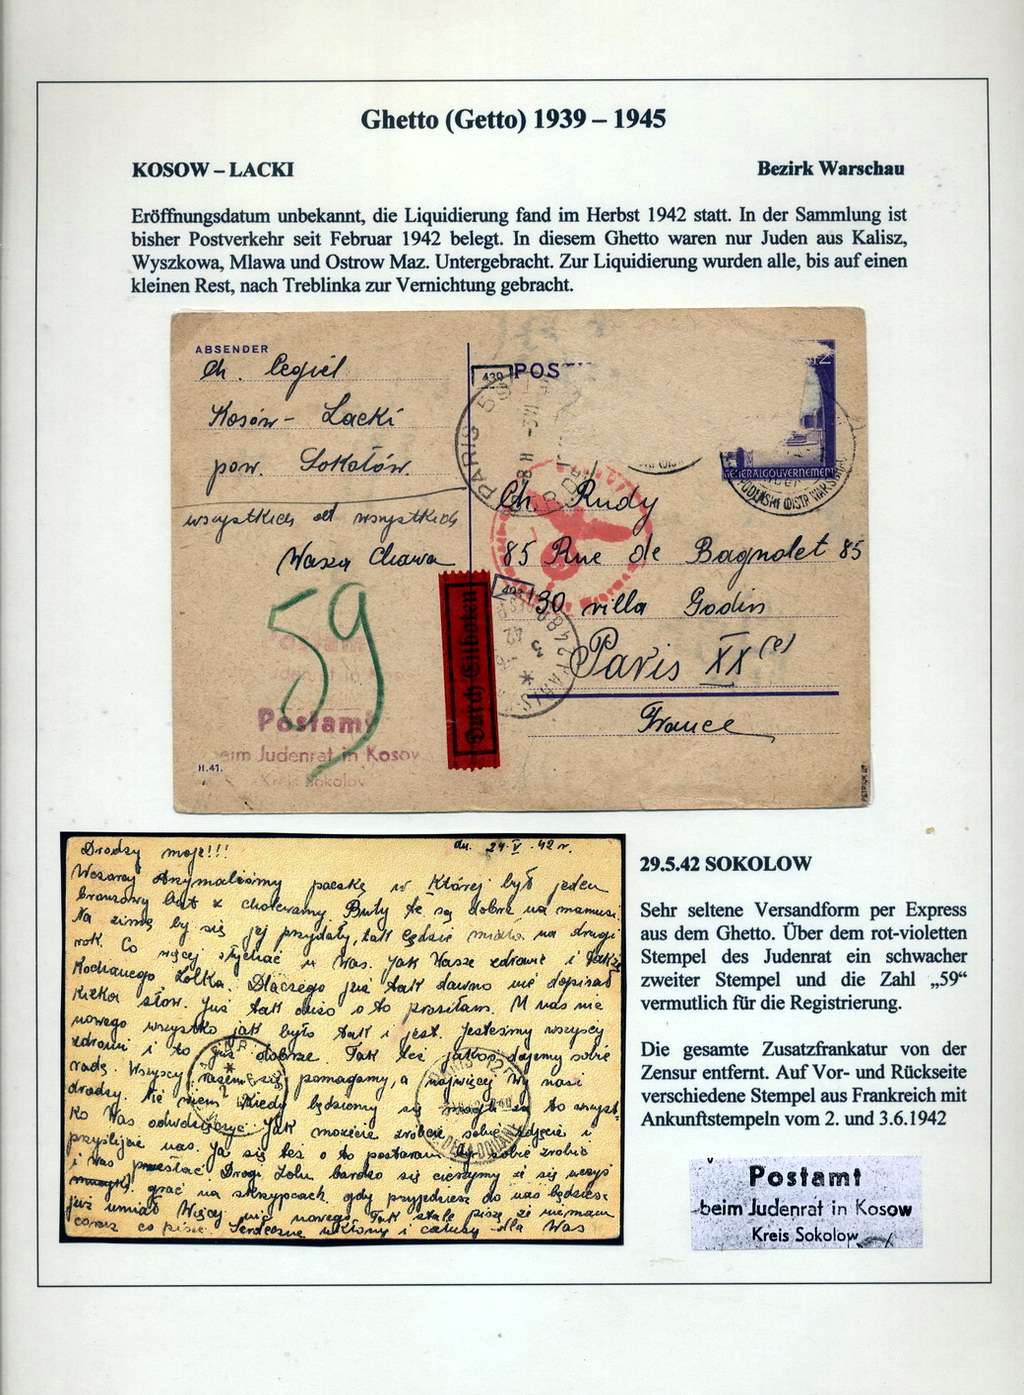 Ghetto (Getto) 1939 – 1945
KOSOW – LACKI
Bezirk Warschau
Eröffnungsdatum unbekannt, die Liquidierung fand im Herbst 1942 statt. In der Sammlung ist
bisher Postverkehr seit Februar 1942 belegt. In diesem Ghetto waren nur Juden aus Kalisz,
Wyszkowa, Mlawa und Ostrow Maz. Untergebracht. Zur Liquidierung wurden alle, bis auf einen
kleinen Rest, nach Treblinka zur Vernichtung gebracht.
ABSENDER
Ch. Cegiel
Kosów - Lacki
pow. Sokołów.
wszystkich od wszystkich
Wasza Chawa
59
Postamt
beim Judenrat in Kosow
Kreis Sokolow
II.41.
439
POST
PARIS 59
GENERALGOUVERNEMENT
Ch. Rudy
85 Rue de Bagnolet 85
130 villa Godin
Paris XX (e)
France
Durch Eilboten
Drodzy moje!!!
dn. 24-V-42 r.
Wczoraj otrzymaliśmy paczkę w której był jeden
bronzowy but z cholewamy. Buty te są dobre na mamusi.
Na zimę by się jej przydały, tak będzie miała na drugi
rok. Co więcej słychać u Was. Jak Wasze zdrowie i także
Kochanego Lolka. Dlaczego już tak dawno nie dopisał
kilka słow. Już tak dużo o to prosiłam. U nas nic
nowego wszystko jak było tak i jest. Jesteśmy wszyscy
zdrowi i to już dobrze. Tak też jakoś dajemy sobie
radę. Wszyscy razem się pomagamy, a najwięcej Wy nasi
drodzy. Nie wiem kiedy będziemy się mogli za to wszyst-
ko Was odwdzięczyć. Jak możecie zróbcie sobie zdjęcie i
przyślijcie nas. Ja się też o to postaram by sobie zrobić
i Was przesłać. Drogi Lolu bardzo się cieszymy że się uczys
grać na skrzypcach. gdy przyjedziesz do nas będziesz
już umiał. Więcej nic nowego. Tak stale piszę że niemam
coraz co pisać. Serdeczne ukłony i całusy dla Was
29.5.42 SOKOLOW
Sehr seltene Versandform per Express
aus dem Ghetto. Über dem rot-violetten
Stempel des Judenrat ein schwacher
zweiter Stempel und die Zahl „59“
vermutlich für die Registrierung.
Die gesamte Zusatzfrankatur von der
Zensur entfernt. Auf Vor- und Rückseite
verschiedene Stempel aus Frankreich mit
Ankunftstempeln vom 2. und 3.6.1942
Postamt
beim Judenrat in Kosow
Kreis Sokolow